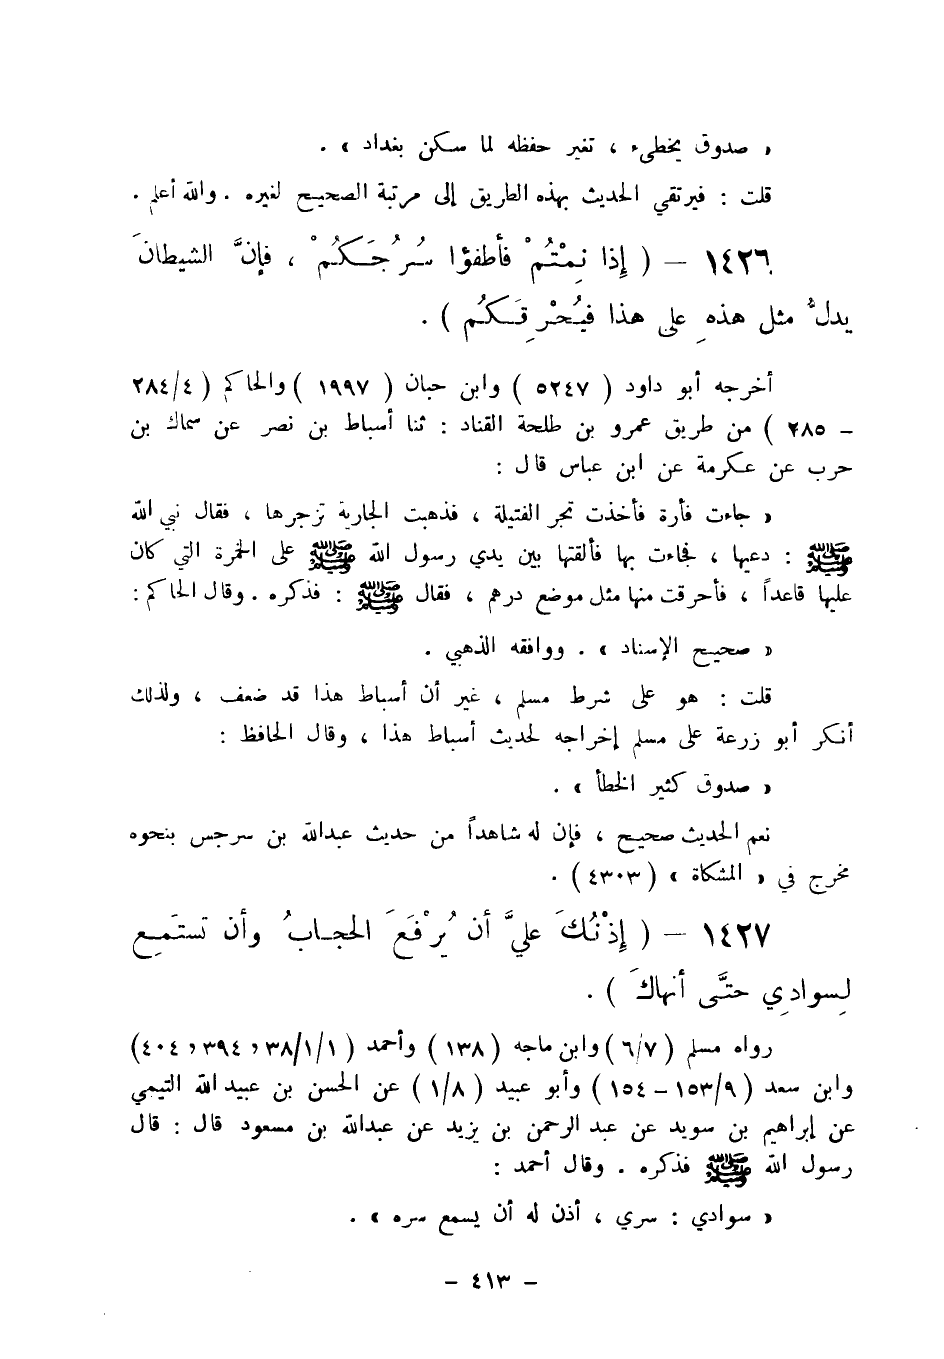 « صدوق يخطىء ، تغير حفظه لما سكن بغداد » .
قلت : فيرتقي الحديث بهذه الطريق إلى مرتبة الصحيح لغيره . والله أعلم .
١٤٢٦ – ( إِذا نِمْتُمْ فأطفؤا سُرُجَكُمْ ، فإنَّ الشيطانَ
يدلُّ مثل هذهِ على هذا فيُحْرِقَكُم ) .
أخرجه أبو داود ( ٥٢٤٧ ) وابن حبان ( ١٩٩٧ ) والحاكم ( ٢٨٤/٤
– ٢٨٥ ) من طريق عمرو بن طلحة القناد : ثنا أسباط بن نصر عن سماك بن
حرب عن عكرمة عن ابن عباس قال :
« جاءت فأرة فأخذت تجر الفتيلة ، فذهبت الجارية تزجرها ، فقال نبي الله
ﷺ : دعيها ، فجاءت بها فألقتها بين يدي رسول الله ﷺ على الخمرة التي كان
عليها قاعداً ، فأحرقت منها مثل موضع درهم ، فقال ﷺ : فذكره . وقال الحاكم :
« صحيح الإسناد » . ووافقه الذهبي .
قلت : هو على شرط مسلم ، غير أن أسباط هذا قد ضعف ، ولذلك
أنكر أبو زرعة على مسلم إخراجه لحديث أسباط هذا ، وقال الحافظ :
« صدوق كثير الخطأ » .
نعم الحديث صحيح ، فإن له شاهداً من حديث عبدالله بن سرجس بنحوه
مخرج في « المشكاة » ( ٤٣٠٣ ) .
١٤٢٧ – ( إِذْنُكَ عليَّ أن يُرْفَعَ الحجابُ وأن تستَمِع
لِسوادِي حتَّى أنهاكَ ) .
رواه مسلم ( ٦/٧ ) وابن ماجه ( ١٣٨ ) وأحمد ( ٣٨/١/١ ، ٣٩٤ ، ٤٠٤ )
وابن سعد ( ١٥٣/٩ – ١٥٤ ) وأبو عبيد ( ١/٨ ) عن الحسن بن عبيد الله التيمي
عن إبراهيم بن سويد عن عبد الرحمن بن يزيد عن عبدالله بن مسعود قال : قال
رسول الله ﷺ فذكره . وقال أحمد :
« سوادي : سري ، أذن له أن يسمع سره » .
– ٤١٣ –